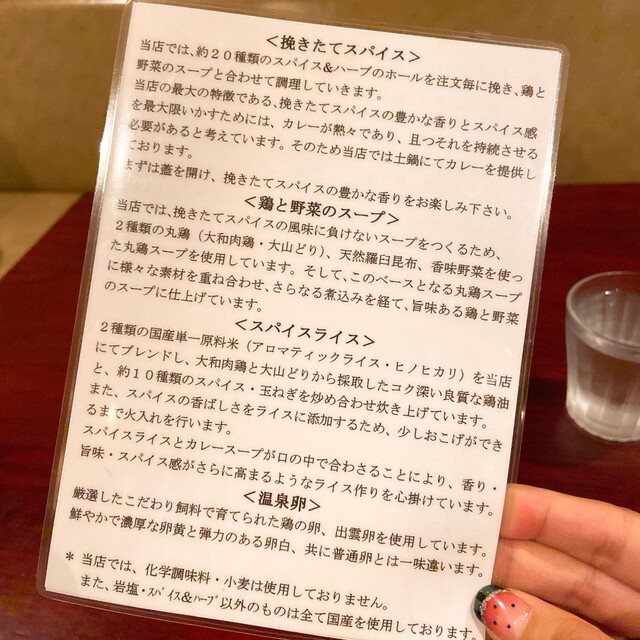 ＜挽きたてスパイス＞
当店では､約２０種類のスパイス&ハーブのホールを注文毎に挽き､鶏と
野菜のスープと合わせて調理していきます。
当店の最大の特徴である､挽きたてスパイスの豊かな香りとスパイス感
を最大限いかすためには、カレーが熱々であり、且つそれを持続させる
必要があると考えています。そのため当店では土鍋にてカレーを提供し
ております。
まずは蓋を開け、挽きたてスパイスの豊かな香りをお楽しみ下さい。
＜鶏と野菜のスープ＞
当店では､挽きたてスパイスの風味に負けないスープをつくるため、
２種類の丸鶏（大和肉鶏・大山どり）、天然羅臼昆布、香味野菜を使っ
た丸鶏スープを使用しています。そして､このベースとなる丸鶏スープ
に様々な素材を重ね合わせ､さらなる煮込みを経て､旨味ある鶏と野菜
のスープに仕上げています。
＜スパイスライス＞
２種類の国産単一原料米（アロマティックライス・ヒノヒカリ）を当店
にてブレンドし、大和肉鶏と大山どりから採取したコク深い良質な鶏油
と、約１０種類のスパイス・玉ねぎを炒め合わせ炊き上げています。
また、スパイスの香ばしさをライスに添加するため、少しおこげができ
るまで火入れを行います。
スパイスライスとカレースープが口の中で合わさることにより、香り・
旨味・スパイス感がさらに高まるようなライス作りを心掛けています。
＜温泉卵＞
厳選したこだわり飼料で育てられた鶏の卵、出雲卵を使用しています。
鮮やかで濃厚な卵黄と弾力のある卵白、共に普通卵とは一味違います。
* 当店では、化学調味料・小麦は使用しておりません。
また、岩塩・ｽﾊﾟｲｽ&ﾊｰﾌﾞ以外のものは全て国産を使用しております。